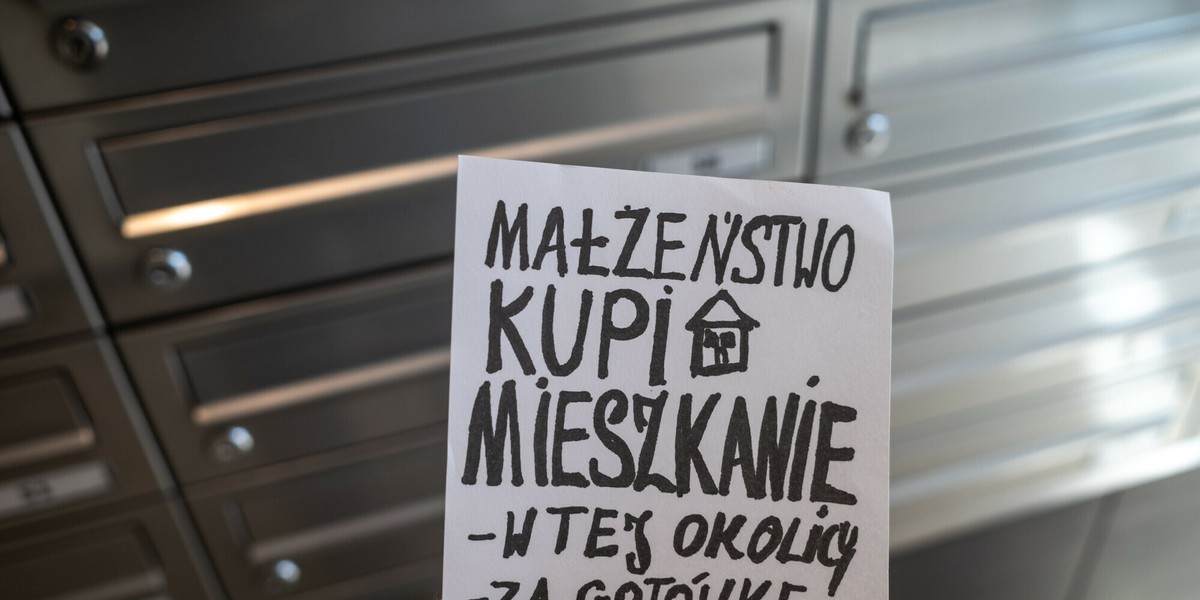 MAŁŻEŃSTWO
KUPi
MiESZKANiE
-W TEJ OKOLiCY
-ZA GOTÓWKĘ